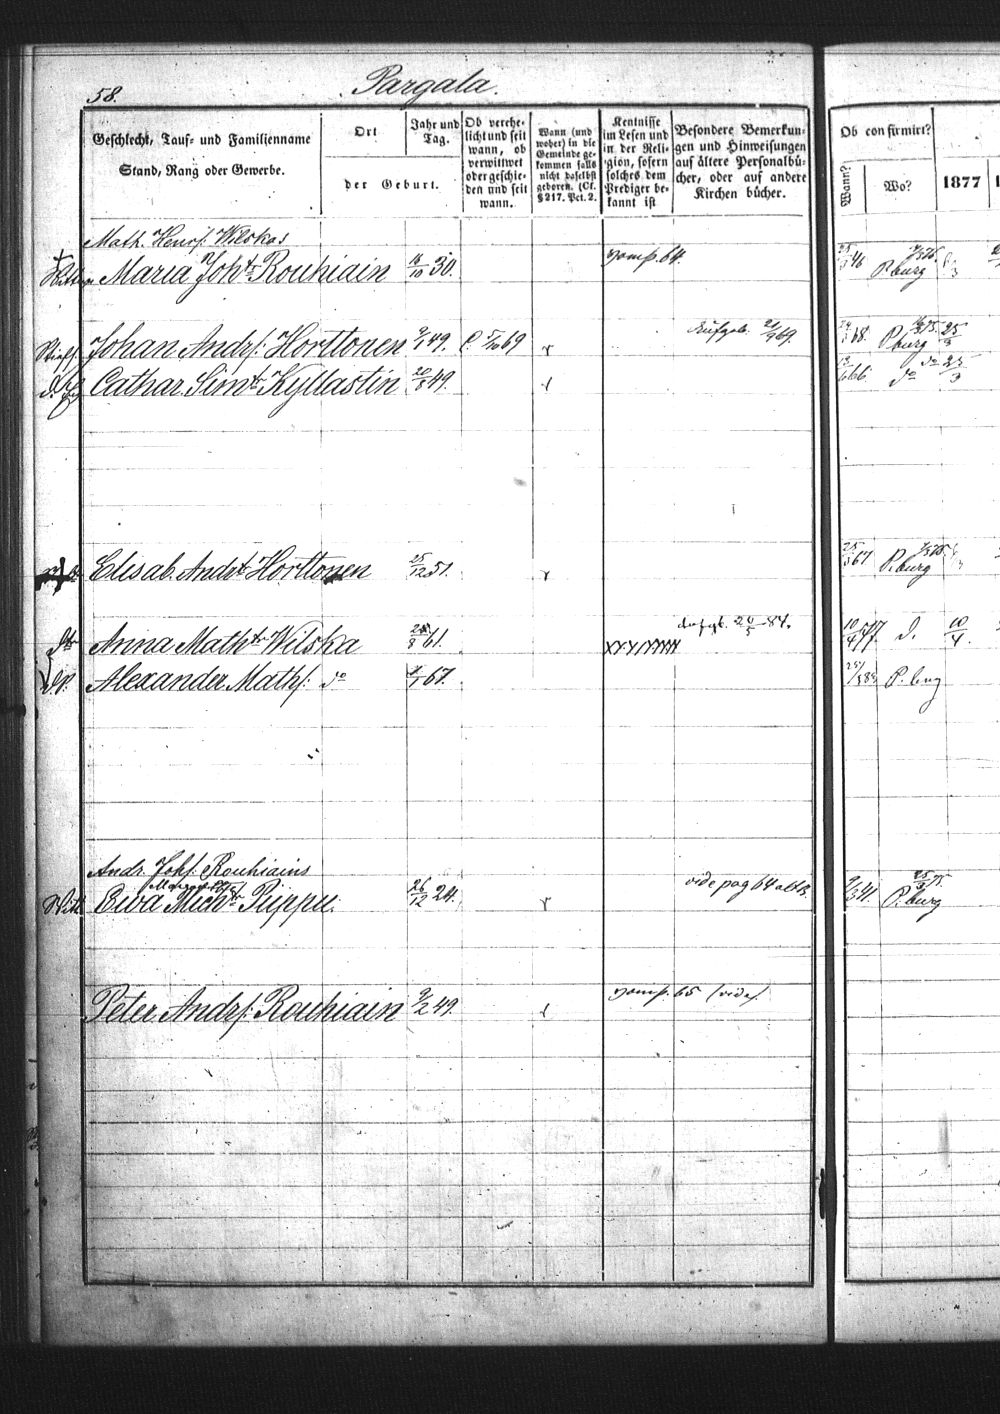 58.
Pargala.
Geschlecht, Tauf- und Familienname
Stand, Rang oder Gewerbe.
Ort
der Geburt.
Jahr und
Tag.
Ob verehe-
licht und seit
wann, ob
verwittwet
oder geschie-
den und seit
wann.
Wann (und
woher) in die
Gemeinde ge-
kommen falls
nicht daselbst
geboren. (Cf.
§ 217. Pct. 2.
Kentnisse
im Lesen und
in der Reli-
gion, sofern
solches dem
Prediger be-
kannt ist
Besondere Bemerkun-
gen und Hinweisungen
auf ältere Personalbü-
cher, oder auf andere
Kirchen bücher.
Ob confirmirt?
Wann?
Wo?
1877
Math. Henrs: Wilskas
Maria Joh:tr Rouhiain 16/10 30. 64. 46 P.burg
Johan Andrs: Horttonen 9/1 49. C. 5/10 69 Aufgeb. 21/9 69. 68. P.burg 25/3
Cathar. Sim:tr Kyllästin 20/3 49. 66. do 25/3
Elisab. And:tr Horttonen 25/12 51. 67 P.burg
Anna Math:tr Wilska 61. Aufgb. 84. 10/4 77. d. 10/4.
Alexander Maths: do 67. 83 P.burg
Andr. Johs: Rouhiains
Witt. Ewa Mich:tr Puppu. 26/12 24. vide pag 64 41. P.burg
Peter Andrs: Rouhiain 9/2 49. 65 (vide).